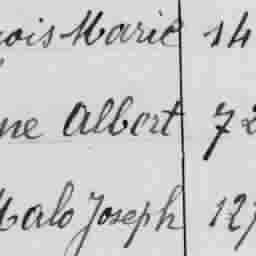 ois Marie 14
ne Albert 72
Malo Joseph 127